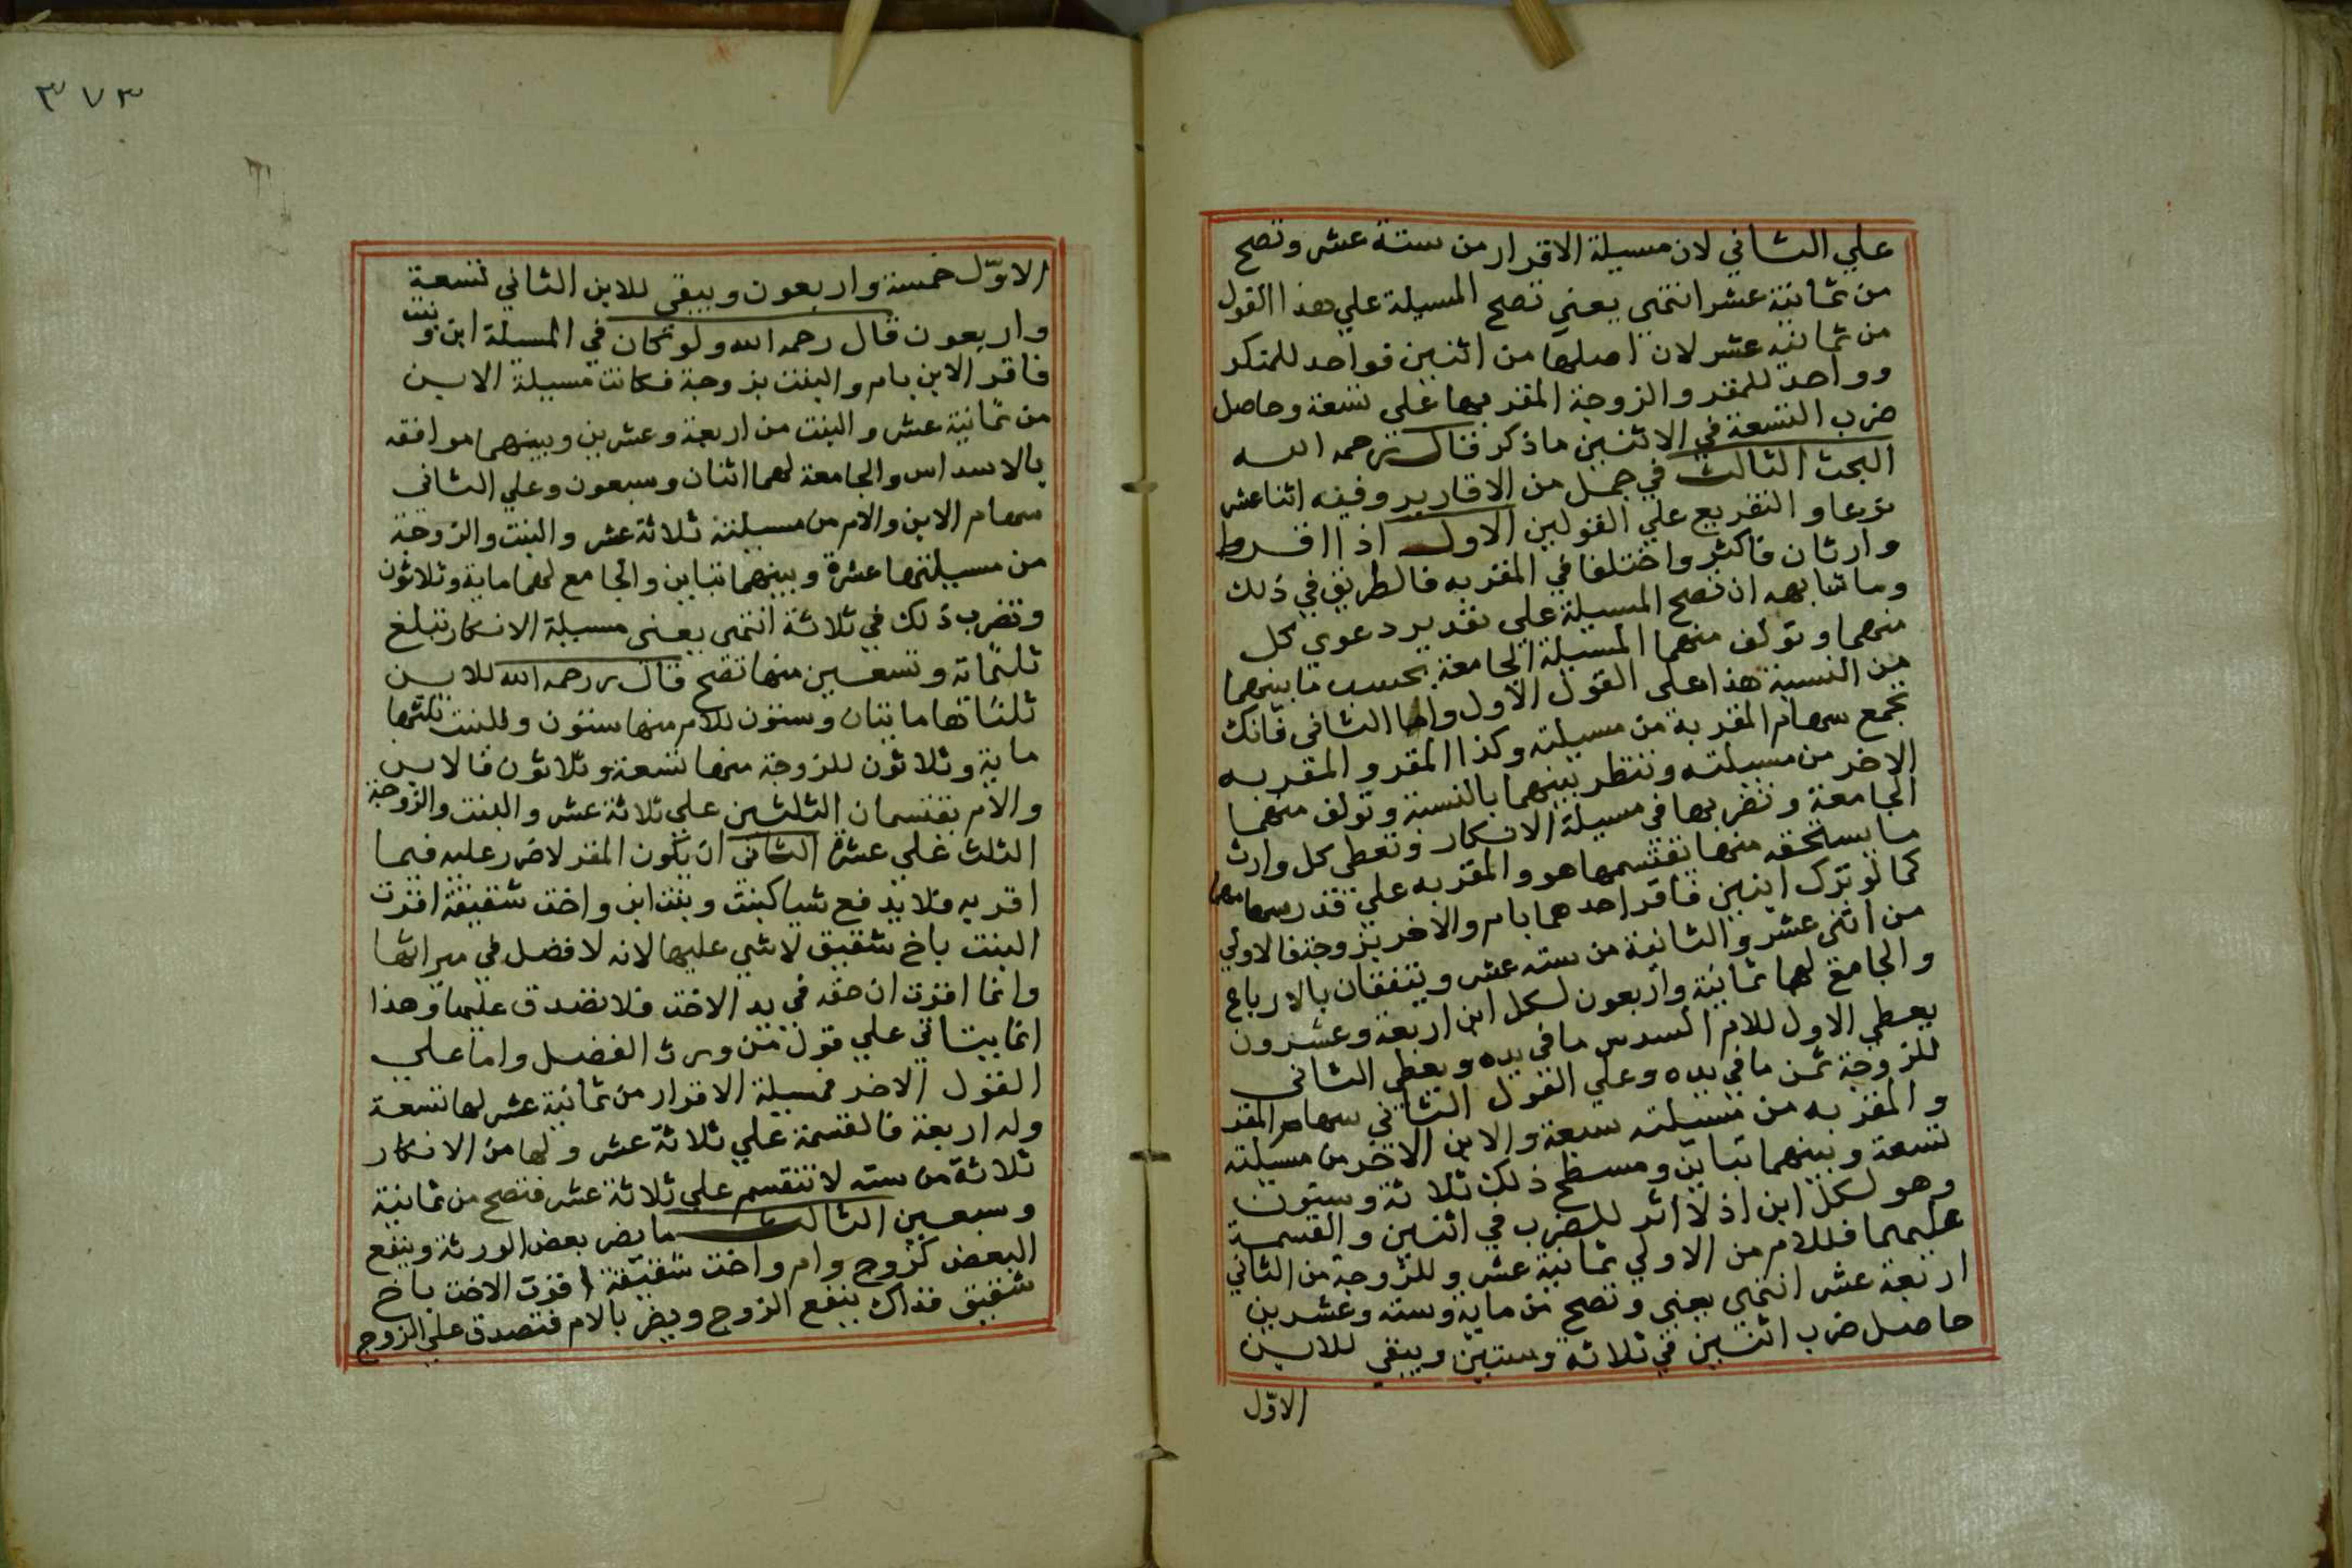 علي الثاني لان مسيلة الاقرار من ستة عشر وتصح
من ثمانية عشر انتهى يعني تصح المسيلة علي هذا القول
من ثمانية عشر لان اصلها من اثنين فواحد للمنكر
وواحد للمقر والزوجة المقر بها علي تسعة وحاصل
ضرب التسعة في الاثنين ما ذكر قال رحمه الله
البحث الثالث في جمل من الاقارير وفيه اثنا عشر
نوعا والتفريع علي القولين الاول اذا اقر
وارثان فاكثر واختلفا في المقر به فالطريق في ذلك
وما شابهه ان تصح المسيلة علي تقدير دعوي كل
منهما وتولف منهما المسيلة الجامعة بحسب ما بينهما
من النسبة هذا على القول الاول واما الثاني فانك
تجمع سهام المقر به من مسيلته وكذا المقر والمقر به
الاخر من مسيلته وتنظر بينهما بالنسبة وتولف منهما
الجامعة وتضربها في مسيلة الانكار وتعطي كل وارث
ما يستحقه منها تقتسمها هو والمقر به علي قدر سهامهما
كما لو ترك ابنين فاقر احدهما بام والاخر بزوجة فالاولي
من اثني عشر والثانية من سته عشر ويتفقان بالارباع
والجامع لهما ثمانية واربعون لكل ابن اربعة وعشرون
يعطي الاول للام السدس ما في يده ويعطي الثاني
للزوجة ثمن ما في يده وعلي القول الثاني سهام المقر
والمقر به من مسيلته سبعة والابن الاخر من مسيلته
تسعة وبينهما تباين ومسطح ذلك ثلاثة وستون
وهو لكل ابن اذ لا اثر للضرب في اثنين والقسمة
عليهما فللام من الاولي ثمانية عشر وللزوجة من الثاني
اربعة عشر انتهي يعني وتصح من ماية وسته وعشرين
حاصل ضرب اثنين في ثلاثة وستين ويبقي للابن
الاوّل
٣٧٣
الاوّل خمسة واربعون ويبقي للابن الثاني تسعة
واربعون قال رحمه الله ولو كان في المسلة ابن وبنت
فاقر الابن بام والبنت بزوجة فكانت مسيلة الابن
من ثمانية عشر والبنت من اربعة وعشرين وبينهما موافقه
بالاسداس والجامعة لهما اثنان وسبعون وعلي الثاني
سهام الابن والام من مسيلتة ثلاثة عشر والبنت والزوجة
من مسيلتها عشرة وبينهما تباين والجامع لهما ماية وثلاثون
وتضرب ذلك في ثلاثة انتهى يعني مسيلة الانكار تبلغ
ثلثماية وتسعين منها تصح قال رحمه الله للابن
ثلثاتها مايتان وستون للام منها ستون وللبنت ثلثها
ماية وثلاثون للزوجة منها تسعة وثلاثون فالابن
والام يقتسمان الثلثين علي ثلاثة عشر والبنت والزوجة
الثلث علي عشرة الثاني ان يكون المقر لا ضرر عليه فيما
اقر به فلا يدفع شيا كبنت وبنت ابن واخت شقيقة اقرت
البنت باخ شقيق لا شي عليها لانه لا فضل في ميراثها
وانما اقرت ان حقه في يد الاخت فلا تصدق عليها وهذا
انما يتاتي علي قول من ورث الفضل واما علي
القول الاخر فمسيلة الاقرار من ثمانية عشر لها تسعة
وله اربعة فالقسمة علي ثلاثة عشر ولها من الانكار
ثلاثة من سته لا تنقسم علي ثلاثة عشر فتصح من ثمانية
وسبعين الثالث ما يضر بعض الورثة وينفع
البعض كزوج وام واخت شقيقة اقرت الاخت باخ
شقيق فذاك ينفع الزوج ويضر بالام فتصدق علي الزوج